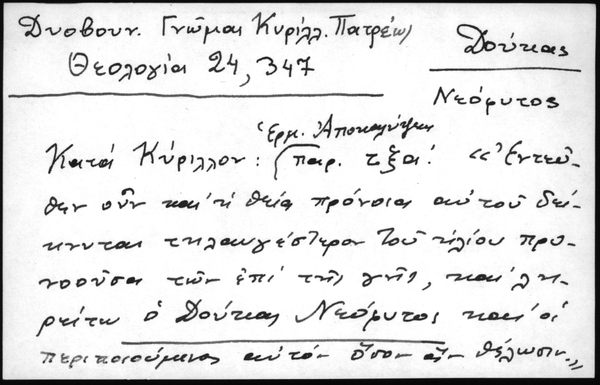 Δυοβουν. Γνῶμαι Κυρίλλ. Πατρέως
Θεολογία 24, 347
Δούκας
Νεόφυτος
Ἑρμ. Ἀποκαλύψεως
Κατά Κύριλλον: (παρ. τξα! «Ἐντεῦ-
θεν οὖν καί ἡ θεία πρόνοια αὐτοῦ δεί-
κνυται τηλαυγέστερον τοῦ ἡλίου προ-
νοοῦσα τῶν ἐπί τῆς γῆς, καί ληρείτω ὁ Δούκας Νεόφυτος καί οἱ
περιποιούμενοι αὐτόν ὅσον ἄν θέλωσιν„